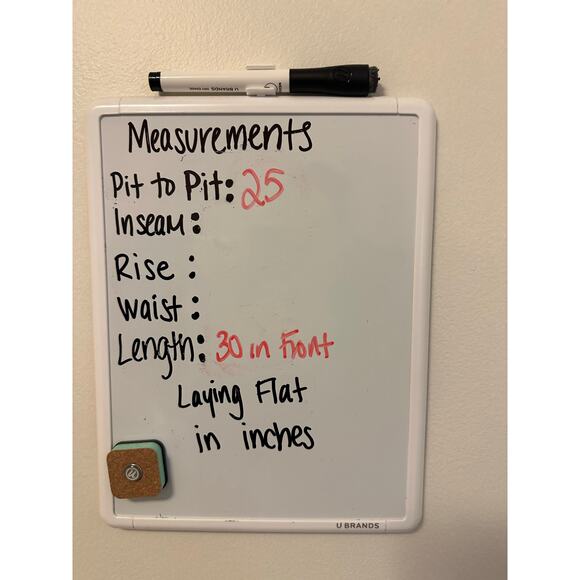 U BRANDS
Measurements
Pit to Pit: 25
Inseam:
Rise:
Waist:
Length: 30 in Front
Laying Flat
in inches
U BRANDS